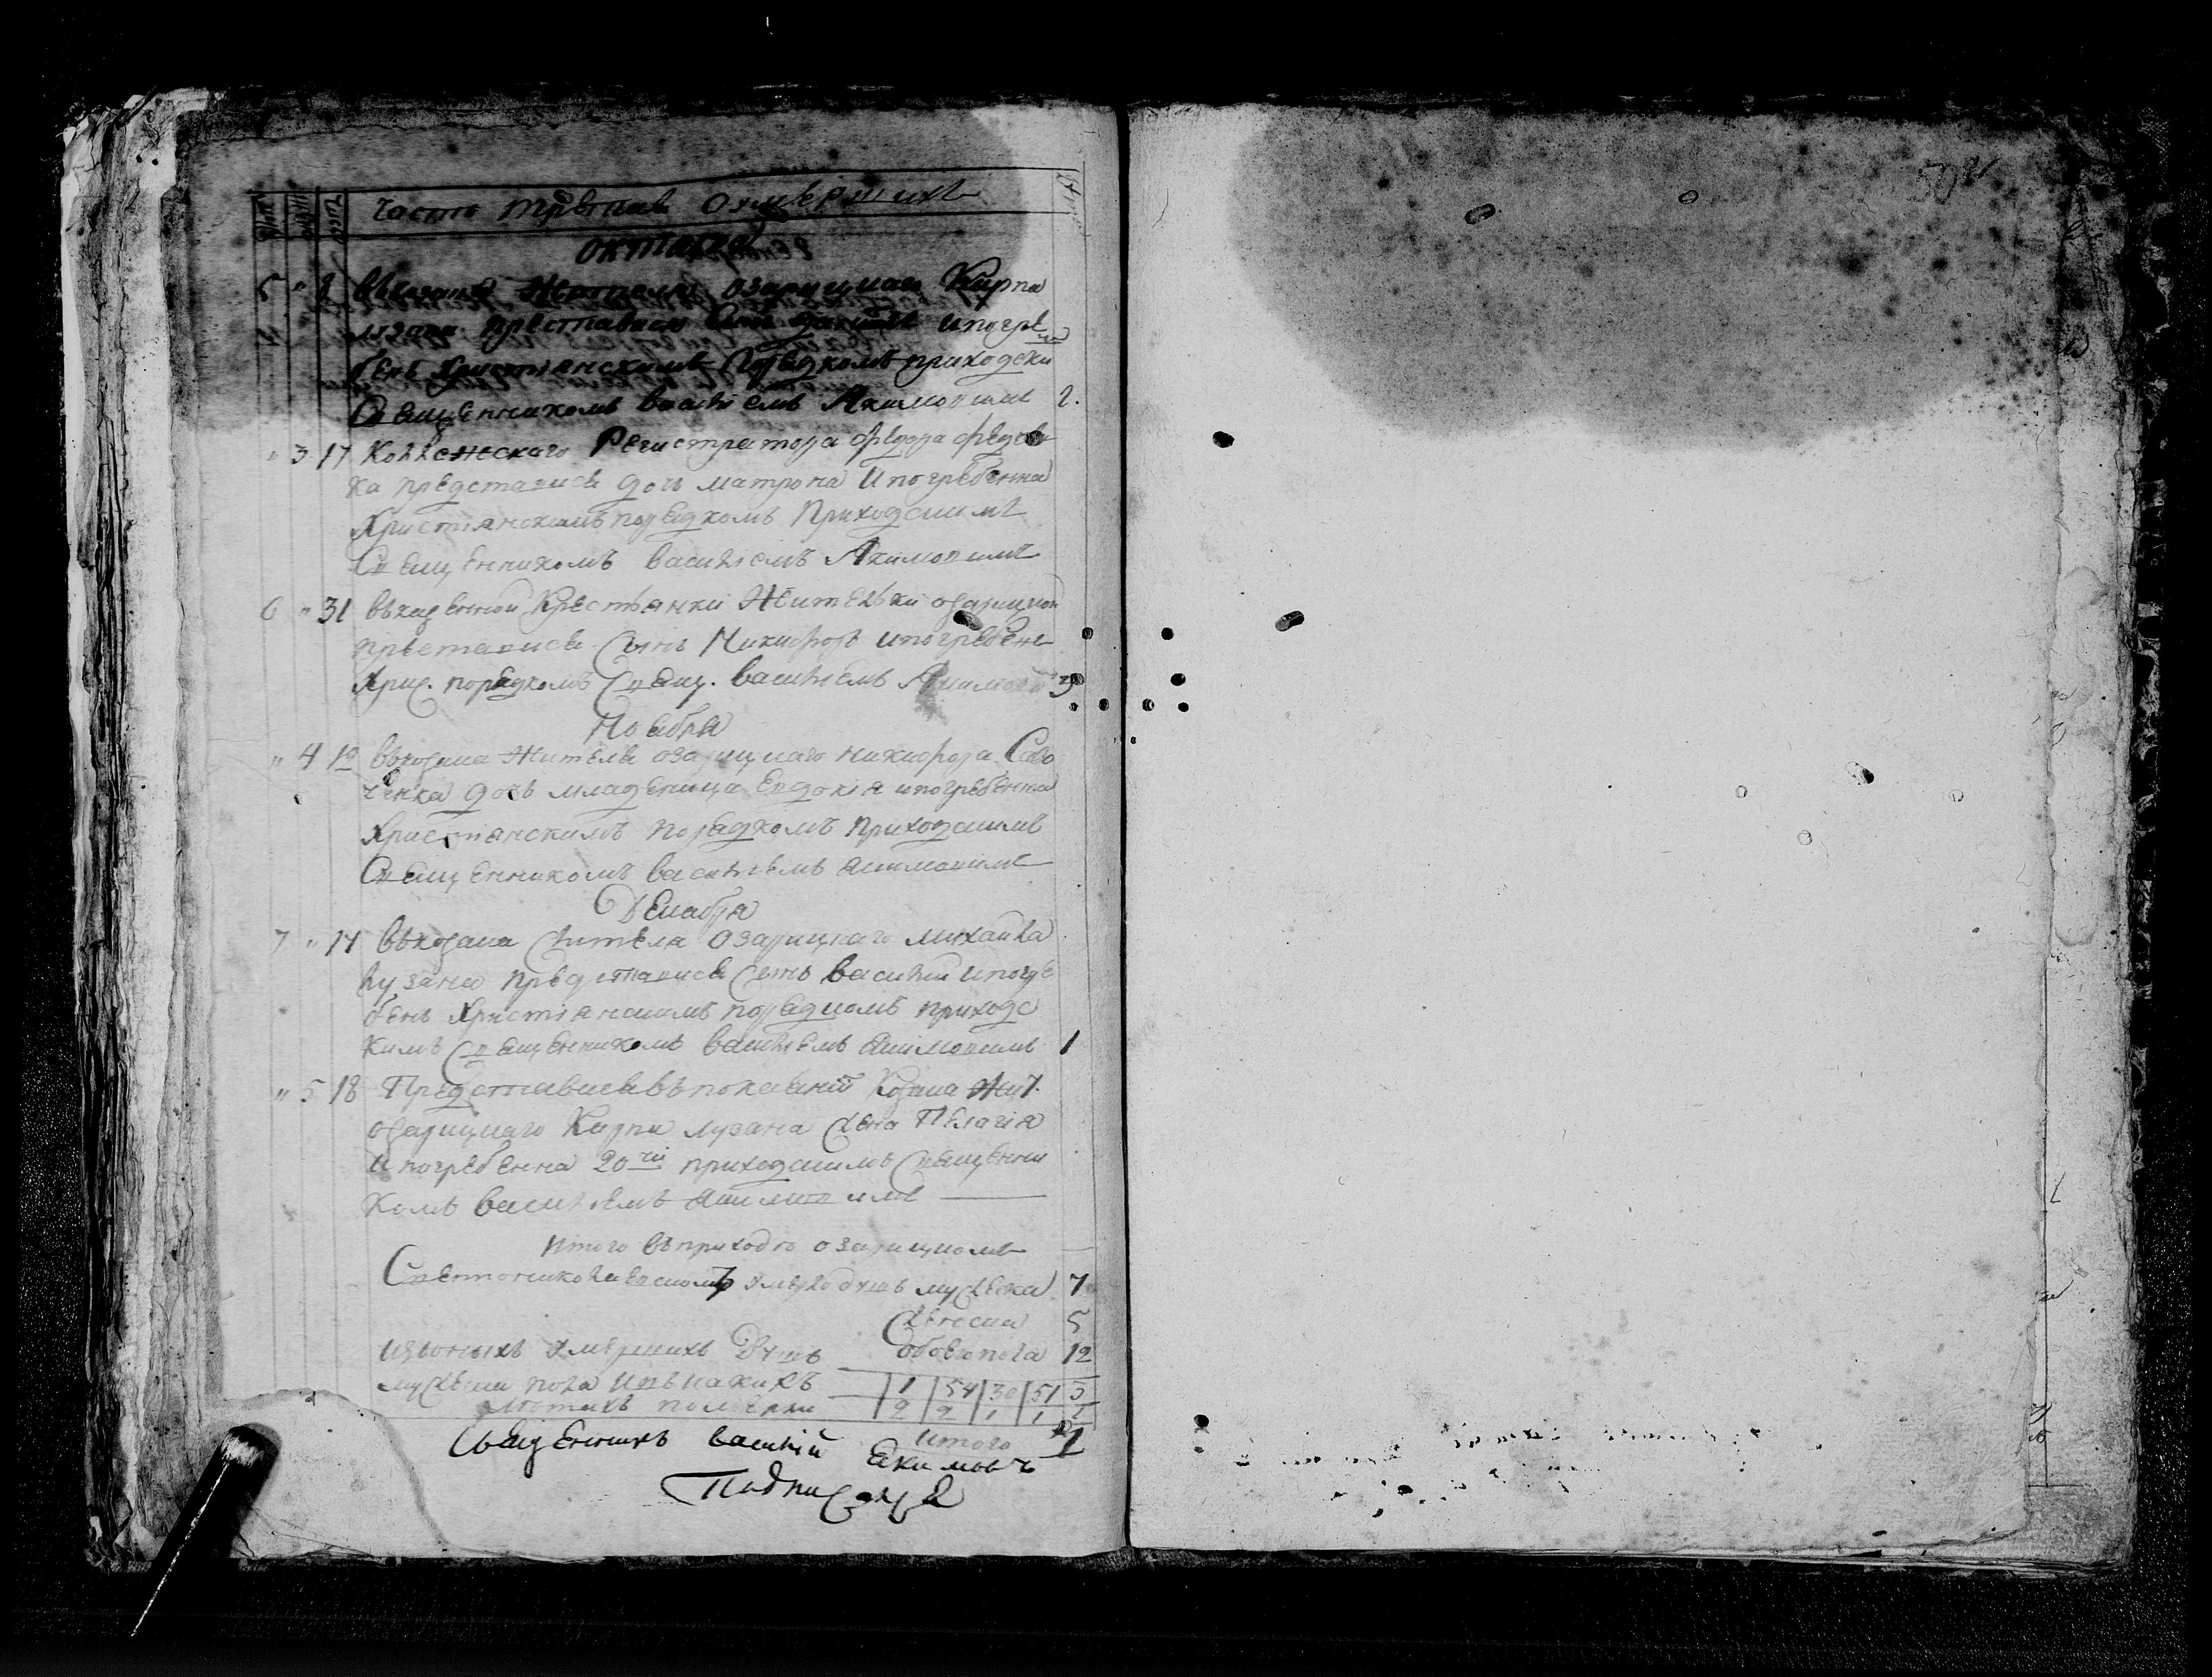 Часть третья о умершихъ
октября
5 " 8 въ козака жителя озарицкаго Кирпа
лузана преставися сынъ и погре
бенъ христіянскимъ порядкомъ приходски
Священникомъ василіемъ Акимовимъ 2.
" 3 17 Коллежскаго Регистратора федора
ка представися дочь матрона и погребенна
Христіянскимъ порядкомъ Приходскимъ
Священникомъ василіемъ Акимовимъ
6 " 31 въ казенной Крестьянки Жителки озарицкой
преставися Сынъ Никифоръ и погребенъ
Хрис. порядкомъ Свящ. василіемъ Якимовим 3
Ноября
" 4 12 въ козака Жителя озарицкаго никифора Саво
ченка дочь младеница Евдокія и погребенна
Христіянскимъ порядкомъ приходскимъ
Священникомъ василіемъ акимовимъ
Декабря
7 " 14 въ козака жителя озарицкаго михаила
лузана представися Сынъ василий и погре
бенъ Христіянскимъ порядкомъ приходс
кимъ Священникомъ василіемъ акимовимъ 1
" 5 18 Представися въ покаяніи Козака Жит.
озарицкаго Карпа лузана жена Пелагія
и погребенна 20 приходскимъ Священни
комъ василіемъ акимовимъ
итого въ приходе озарицкомъ
Святониколаевском душъ мужеска 7
женска 5
изъ оныхъ умершихъ Душъ обоего пола 12
мужеска пола 1 54 30 51 5
2 2 1 1
итого
Священникъ василій Екимовъ
Подписался